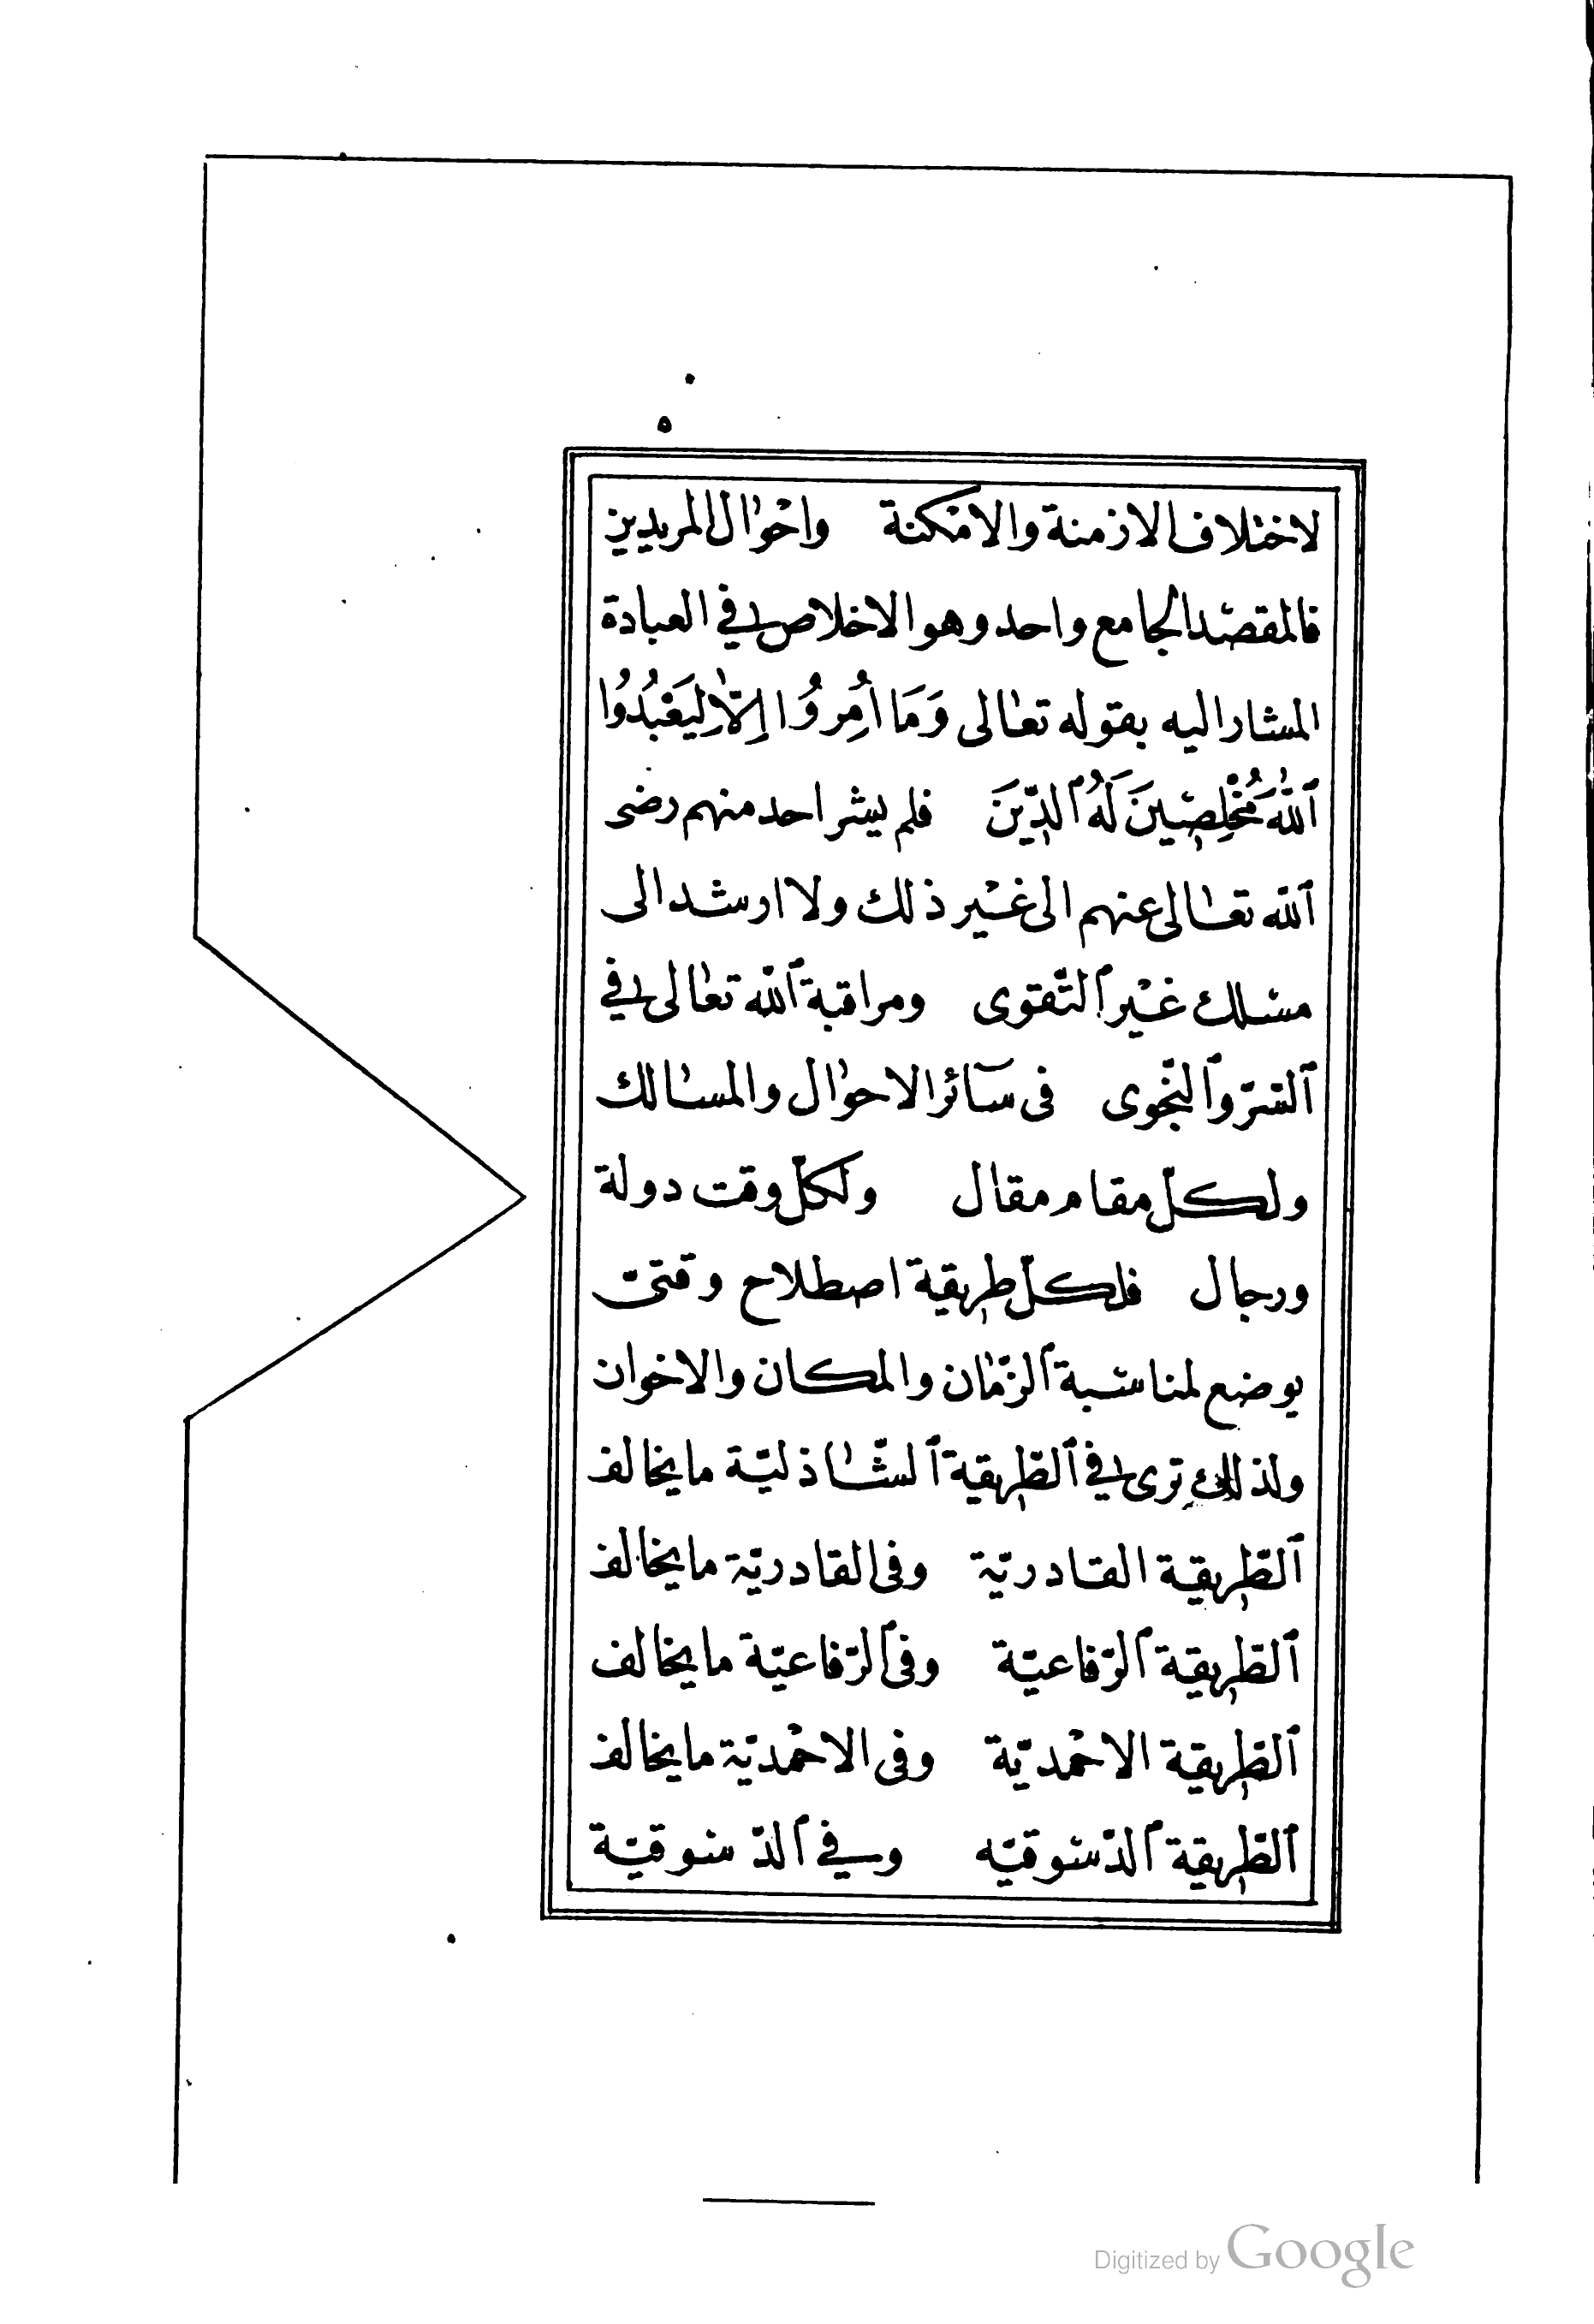 ٥
لاختلاف الازمنة والامكنة واحوال المريدين
فالمقصد الجامع واحد وهو الاخلاص في العبادة
المشار اليه بقوله تعالى وَمَا أُمِرُوا إِلَّا لِيَعْبُدُوا
ٱللَّهَ مُخْلِصِينَ لَهُ ٱلدِّينَ فلم يشر احد منهم رضى
ٱللّه تعالى عنهم الى غير ذلك ولا ارشد الى
مسلك غير ٱلتّقوى ومراقبة ٱللّه تعالى في
ٱلسّرّ وٱلنّجوى فى سآئر الاحوال والمسالك
ولكلّ مقام مقال ولكلّ وقت دولة
ورجال فلكلّ طريقة اصطلاح وقتىّ
يوضع لمناسبة ٱلزّمان والمكان والاخوان
ولذلك ترى في ٱلطّريقة ٱلشّاذليّة ما يخالف
ٱلطّريقة القادريّة وفى القادريّة ما يخالف
ٱلطّريقة ٱلرّفاعيّة وفى ٱلرّفاعيّة ما يخالف
ٱلطّريقة الاحمديّة وفى الاحمديّة ما يخالف
ٱلطّريقة ٱلدّسوقيّه وفي ٱلدّسوقيّة
Digitized by Google